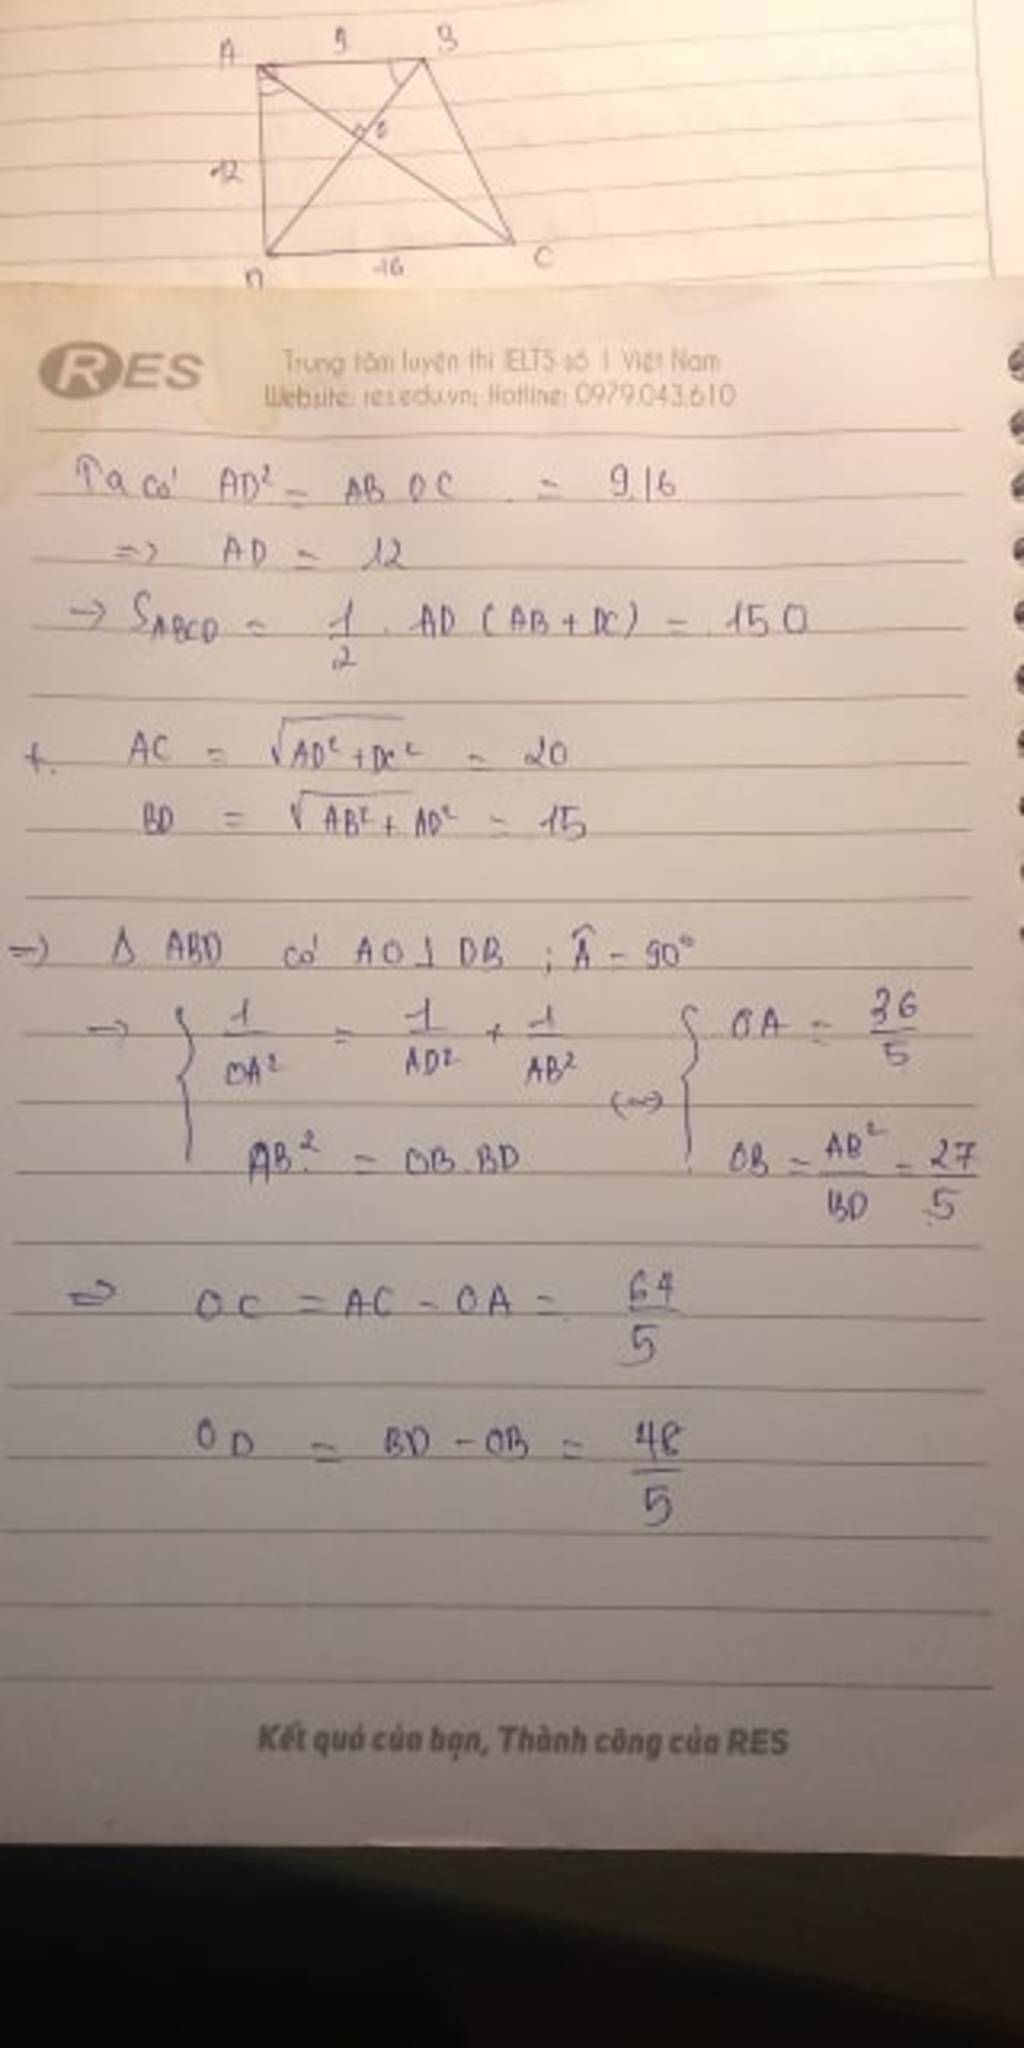 A 9 B
O
12
D 16 C
RES
Trung tâm luyện thi IELTS số 1 Việt Nam
Website: res.edu.vn; Hotline: 0979.043.610
Ta có AD² = AB DC = 9.16
=> AD = 12
-> S_ABCD = 1/2 . AD (AB + DC) = 150
+. AC = √(AD² + DC²) = 20
BD = √(AB² + AD²) = 15
=> Δ ABD có AO ⊥ DB ; Â = 90°
-> { 1/OA² = 1/AD² + 1/AB² (=>) { OA = 36/5
AB² = OB.BD OB = AB²/BD = 27/5
=> OC = AC - OA = 64/5
OD = BD - OB = 48/5
Kết quả của bạn, Thành công của RES